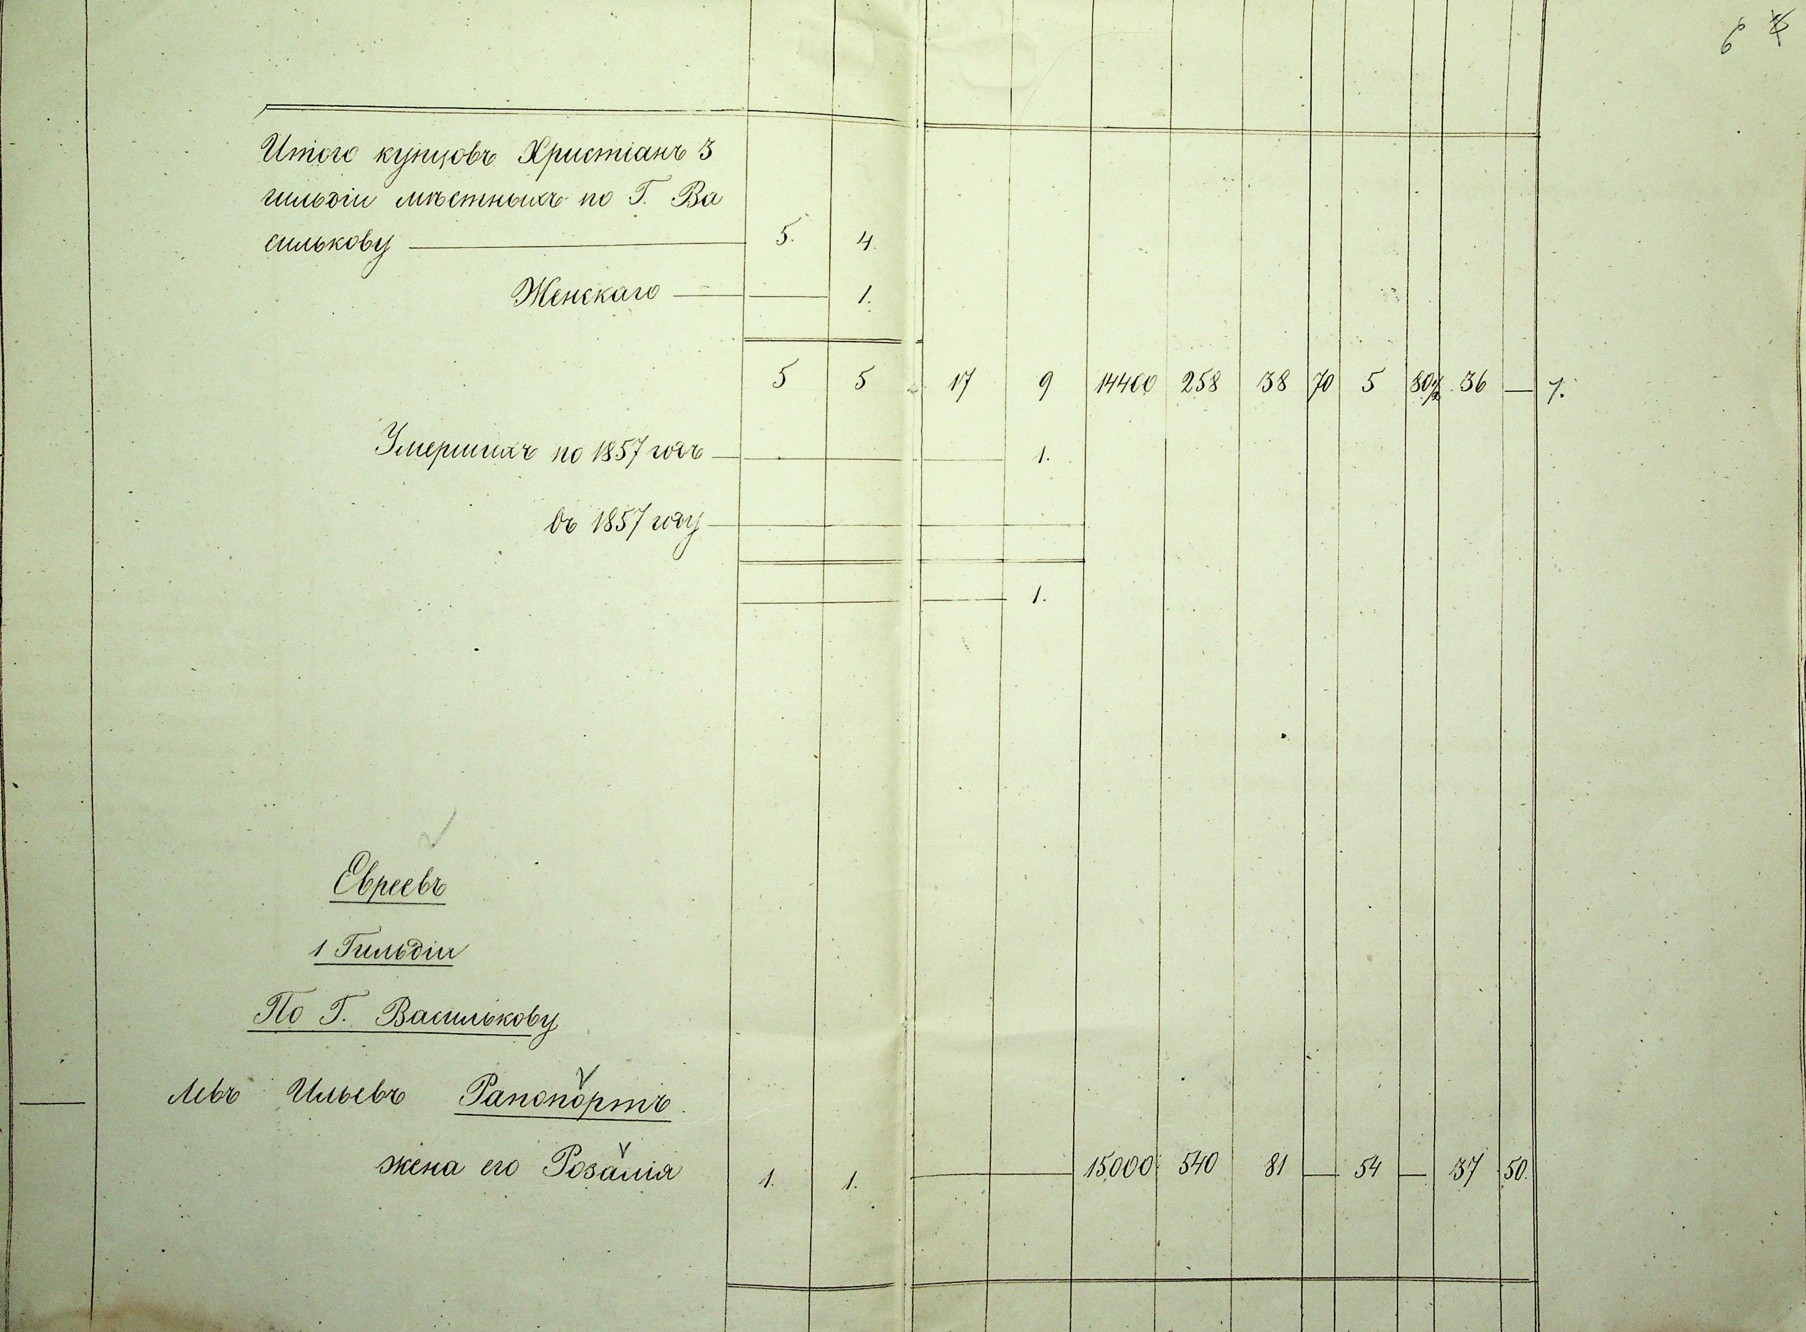 6
Итого купцовъ Христіанъ 3
гильдіи мѣстныхъ по Г. Ва
силькову 5. 4.
Женскаго 1.
5 5 17 9 14400 258 38 70 5 80½ 36 — 7.
Умершихъ по 1857 годъ 1.
въ 1857 году
1.
Евреевъ
1 Гильдіи
По Г. Василькову
Левъ Ильевъ Рапопортъ.
жена его Розалія 1. 1. 15000 540 81 — 54 — 37 50.